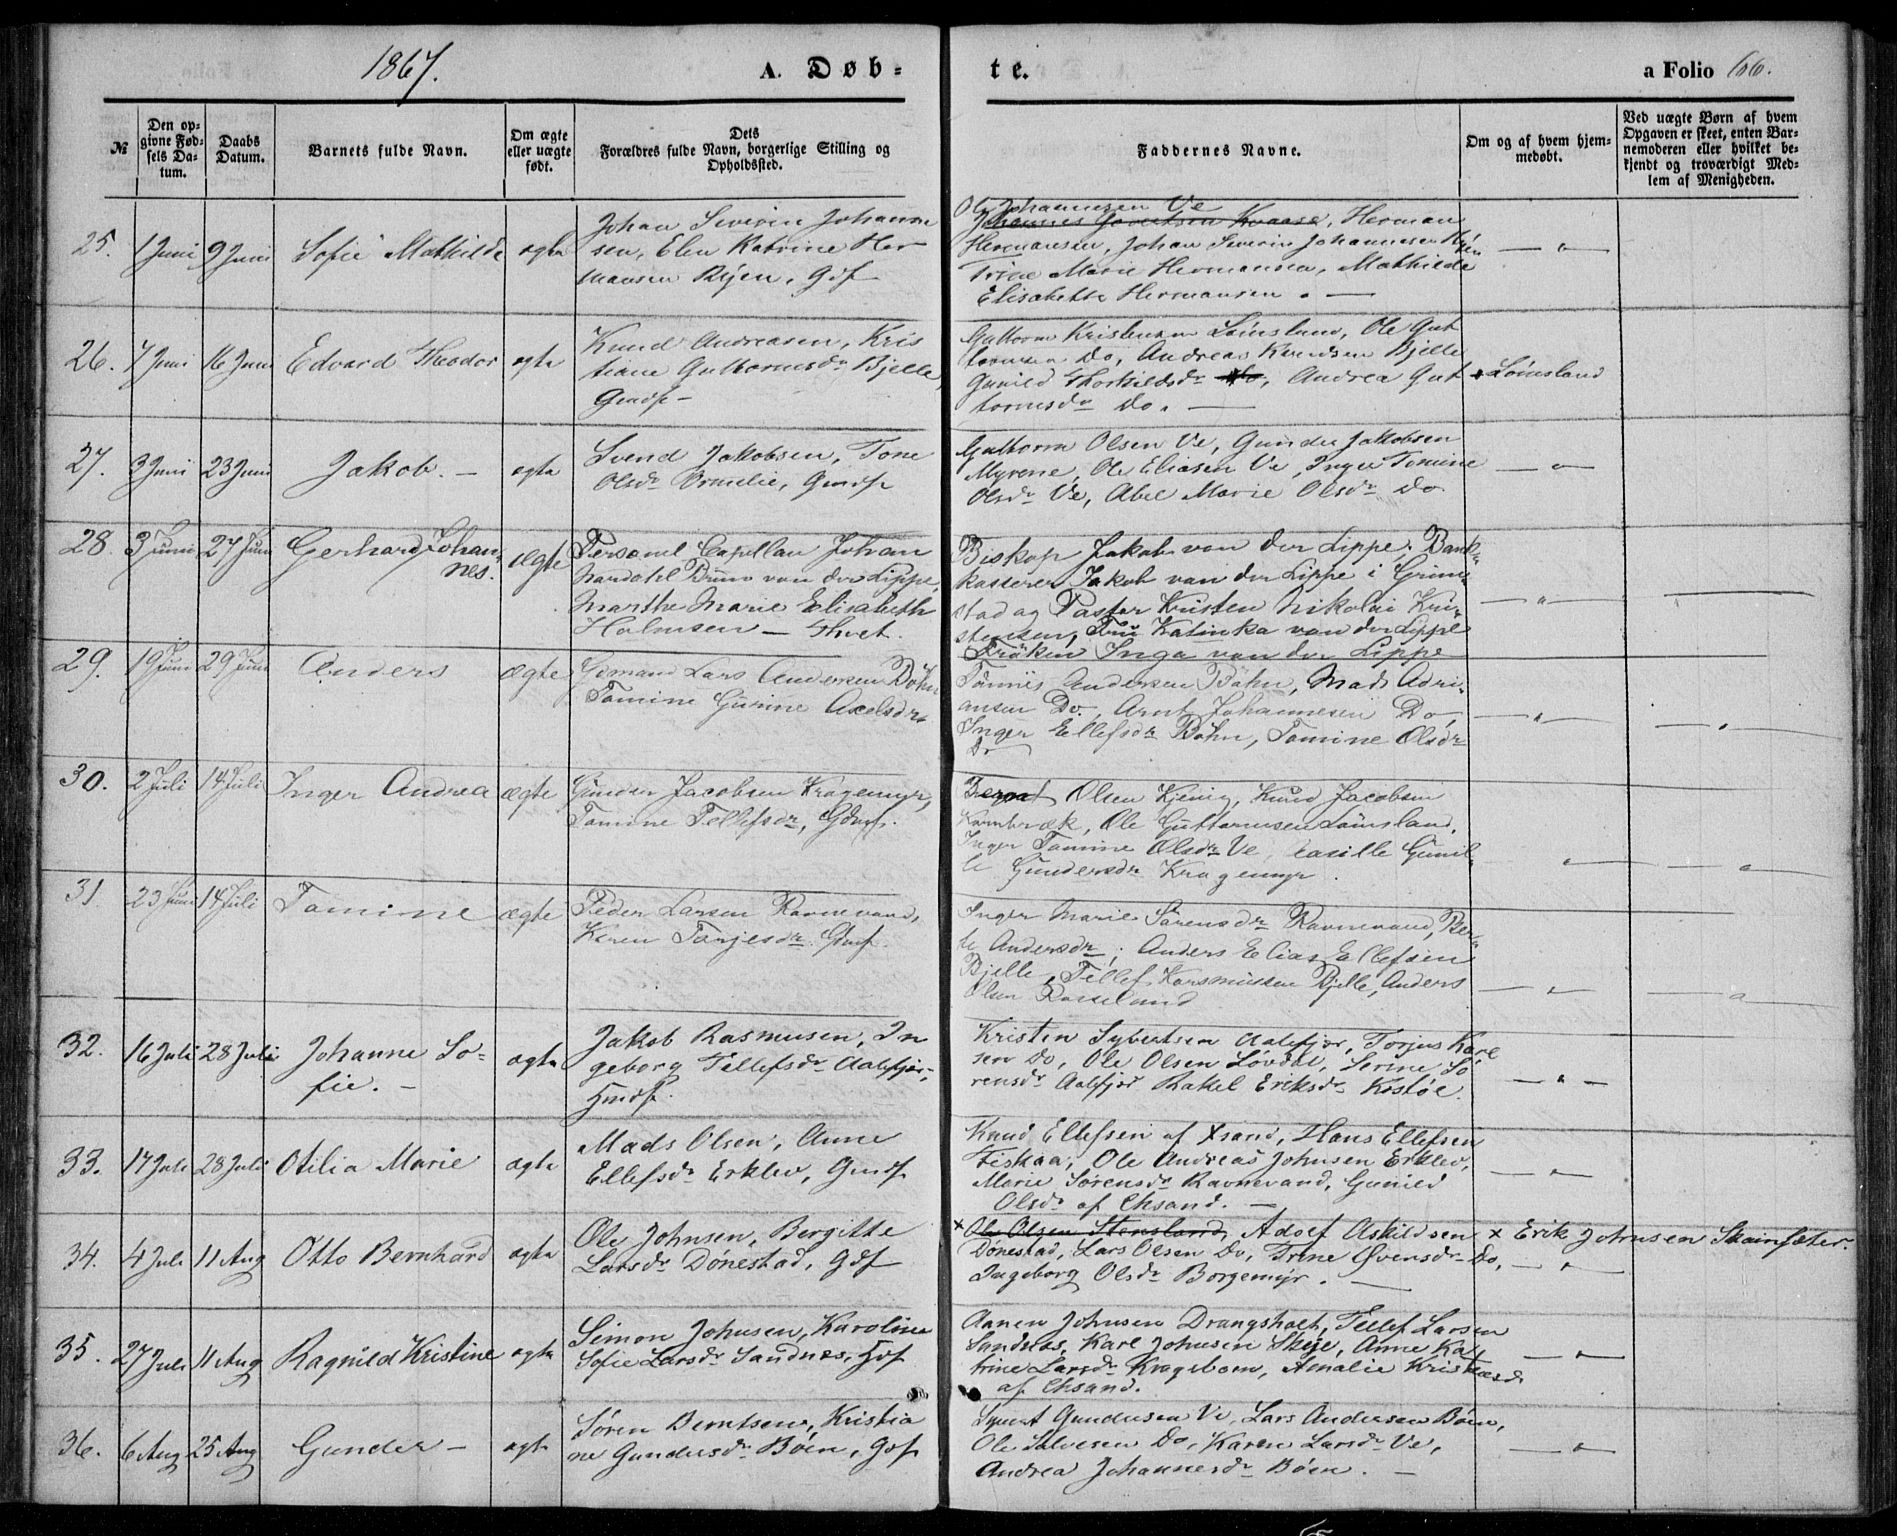 1867.
A. Døb-
te.
a Folio 66.
№
Den op-
givne Fød-
sels Da-
tum.
Daabs
Datum.
Barnets fulde Navn.
Om ægte
eller uægte
født.
Dets
Forældres fulde Navn, borgerlige Stilling og
Opholdssted.
Faddernes Navne.
Om og af hvem hjem-
medøbt.
Ved uægte Børn af hvem
Opgaven er skeet, enten Bar-
nemoderen eller hvilket be-
kjendt og troværdigt Med-
lem af Menigheden.
25. 1 Juni 9 Juni Sofie Mathilde ægte
Johan Severin Johanne
sen, Elen Katrine Her
mansen Ryen, Gdf
Ole Johannesen Ve
Johannes Kvaase, Herman
Hermansen, Johan Severin Johannesen Ryen
Trine Marie Hermansen, Mathilde
Elisabeth Hermansen. —
— " —
26. 7 Juni 16 Juni Edvard Theodor ægte
Knud Andreasen, Kris
tiane Guttormsdr Bjelle,
Gmdf —
Guttorm Kristensen Lømsland, Ole Gut
tormsen Do, Andreas Knudsen Bjelle
Gunild Thorkildsdr Do, Andrea Gut
tormsdr Do. —
Lømsland
27. 3 Juni 23 Juni Jakob. — ægte
Svend Jakobsen, Tone
Olsdr Ormelie, Gmdf
Guttorm Olsen Ve, Gunder Jakobsen
Myrene, Ole Eliasen Ve, Inger Tomine
Olsdr Ve, Abel Marie Olsdr Do
— " —
28. 3 Juni 27 Juni Gerhard Johan-
nes. ægte
Personel Capellan Johan
Nardahl Brun von der Lippe,
Marthe Marie Elisabeth
Holmsen — Thvet.
Biskop Jakob von der Lippe, Bank-
kasserer Jakob van der Lippe i Grim-
stad og Pastor Kristen Nikolai Kri-
stensen, Fru Katinka van der Lippe
Frøken Inga van der Lippe
— " —
29. 19 Juni 29 Juni Anders ægte
Gdmand Lars Andersen Bøhn
Tomine Gurine Axelsdr
Tønnes Andersen Bøhn, Mads Adri-
ansen Do, Arnt Johannesen Do,
Inger Ellefsdr Bøhn, Tomine Olsdr
Do
— " —
— " —
30. 2 Juli 14 Juli Inger Andrea ægte
Gunder Jacobsen Kragemyr,
Tomine Tellefsdr, Gdmf.
Olsen Kjenig, Knud Jacobsen
Ole Guttormsen Lømsland,
Inger Tomine Olsdr Ve, Gunil-
le Gundersdr Kragemyr.
— " —
— " —
31 23 Juni 14 Juli Tomine ægte
Peder Larsen Ravnevand,
Karen Torjesdr Gdmf.
Inger Marie Sørensdr Ravnevand, Ber-
te Andersdr, Anders Elias Ellefsen
Bjelle, Tellef Rasmussen Bjelle, Anders
Olsen Rosseland
— " —
— " —
32. 16 Juli 28 Juli Johanne So-
fie. — ægte
Jakob Rasmusen, In
geborg Tellefsdr Aalefjær,
Hmdf.
Kristen Sybertsen Aalefjær, Torjus Karl
sen Do, Ole Olsen Løvdal, Serine Sø
rensdr Aalefjær Rakel Eriksdr Kostøe.
— " —
33. 17 Juli 28 Juli Otilia Marie ægte
Mads Olsen, Anne
Ellefsdr Erklev, Gmdf
Knud Ellefsen af Xsand, Hans Ellefsen
Fiskaa, Ole Andreas Johnsen Erklev,
Marie Sørensdr Ravnevand, Gunild
Olsdr af Chsand. —
— " —
34. 4 Juli 11 Aug Otto Bernhard ægte
Ole Johnsen, Bergitte
Larsdr Dønestad, Gdf
× Ole Olsen Stensland, Adolf Askildsen
Dønestad, Lars Olsen Do, Trine Øvensdr Do,
Ingeborg Olsdr Borgemyr. —
× Erik Johnsen Skainsæter.
— " —
35. 27 Juli 11 Aug Ragnild Kristine ægte
Simon Johnsen, Karoline
Sofie Larsdr Sandnes, Hdf
Aanen Johnsen Drangsholt, Tellef Larsen
Sandnes, Karl Johnsen Skeje, Anne Ka
trine Larsdr Kragebom, Amalie Kristensd
af Chsand.
— " —
36. 6 Aug 25 Aug Gunder — ægte
Søren Berntsen, Kristia
ne Gundersdr Bøen, Gdf
Gundersen Ve, Lars Andersen Bøen,
Ole Salvesen Do, Karen Larsdr Ve,
Andrea Johannesdr Bøen. —
— " —